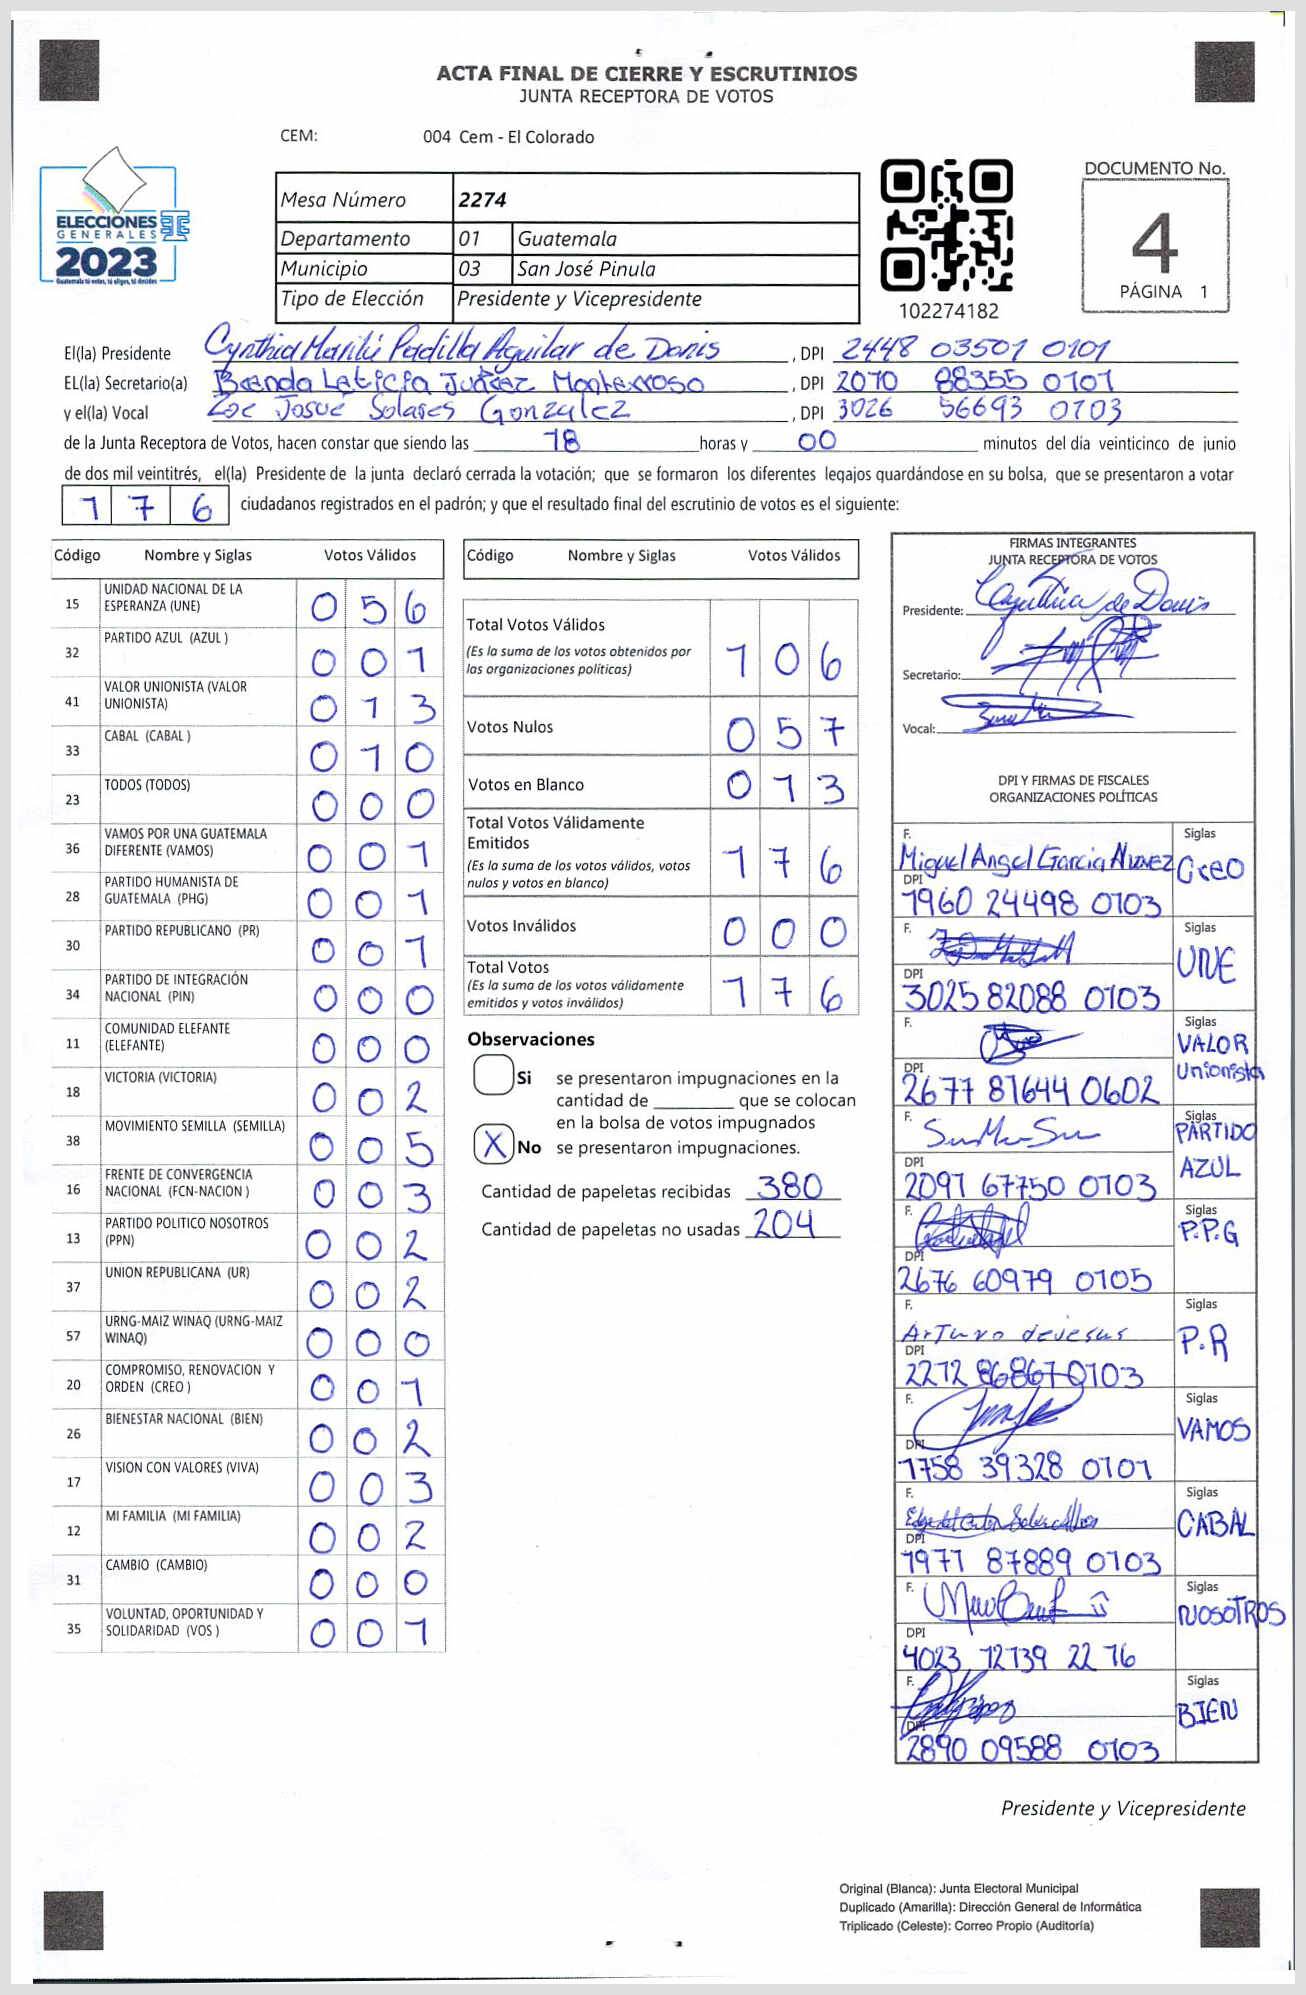 ACTA FINAL DE CIERRE Y ESCRUTINIOS
JUNTA RECEPTORA DE VOTOS
CEM: 004 Cem - El Colorado
ELECCIONES
GENERALES
2023
Guatemala tú votas, tú eliges, tú decides
Mesa Número 2274
Departamento 01 Guatemala
Municipio 03 San José Pinula
Tipo de Elección Presidente y Vicepresidente
102274182
DOCUMENTO No.
4
PÁGINA 1
El(la) Presidente Cynthia Marilú Padilla Aguilar de Donis , DPI 2448 03501 0101
EL(la) Secretario(a) Brenda Leticia Juárez Monterroso , DPI 2070 88355 0101
y el(la) Vocal Zoe Josué Solares González , DPI 3026 56693 0103
de la Junta Receptora de Votos, hacen constar que siendo las 18 horas y 00 minutos del día veinticinco de junio
de dos mil veintitrés, el(la) Presidente de la junta declaró cerrada la votación; que se formaron los diferentes legajos guardándose en su bolsa, que se presentaron a votar
1 7 6 ciudadanos registrados en el padrón; y que el resultado final del escrutinio de votos es el siguiente:
Código Nombre y Siglas Votos Válidos
15 UNIDAD NACIONAL DE LA
ESPERANZA (UNE) 0 5 6
32 PARTIDO AZUL (AZUL ) 0 0 1
41 VALOR UNIONISTA (VALOR
UNIONISTA) 0 1 3
33 CABAL (CABAL ) 0 1 0
23 TODOS (TODOS) 0 0 0
36 VAMOS POR UNA GUATEMALA
DIFERENTE (VAMOS) 0 0 1
28 PARTIDO HUMANISTA DE
GUATEMALA (PHG) 0 0 1
30 PARTIDO REPUBLICANO (PR) 0 0 1
34 PARTIDO DE INTEGRACIÓN
NACIONAL (PIN) 0 0 0
11 COMUNIDAD ELEFANTE
(ELEFANTE) 0 0 0
18 VICTORIA (VICTORIA) 0 0 2
38 MOVIMIENTO SEMILLA (SEMILLA) 0 0 5
16 FRENTE DE CONVERGENCIA
NACIONAL (FCN-NACION ) 0 0 3
13 PARTIDO POLITICO NOSOTROS
(PPN) 0 0 2
37 UNION REPUBLICANA (UR) 0 0 2
57 URNG-MAIZ WINAQ (URNG-MAIZ
WINAQ) 0 0 0
20 COMPROMISO, RENOVACION Y
ORDEN (CREO ) 0 0 1
26 BIENESTAR NACIONAL (BIEN) 0 0 2
17 VISION CON VALORES (VIVA) 0 0 3
12 MI FAMILIA (MI FAMILIA) 0 0 2
31 CAMBIO (CAMBIO) 0 0 0
35 VOLUNTAD, OPORTUNIDAD Y
SOLIDARIDAD (VOS ) 0 0 1
Código Nombre y Siglas Votos Válidos
Total Votos Válidos
(Es la suma de los votos obtenidos por
las organizaciones políticas) 1 0 6
Votos Nulos 0 5 7
Votos en Blanco 0 1 3
Total Votos Válidamente
Emitidos
(Es la suma de los votos válidos, votos
nulos y votos en blanco) 1 7 6
Votos Inválidos 0 0 0
Total Votos
(Es la suma de los votos válidamente
emitidos y votos inválidos) 1 7 6
Observaciones
Si se presentaron impugnaciones en la
cantidad de ________ que se colocan
en la bolsa de votos impugnados
X No se presentaron impugnaciones.
Cantidad de papeletas recibidas 380
Cantidad de papeletas no usadas 204
FIRMAS INTEGRANTES
JUNTA RECEPTORA DE VOTOS
Presidente: Cynthia de Donis
Secretario:
Vocal:
DPI Y FIRMAS DE FISCALES
ORGANIZACIONES POLÍTICAS
F. Siglas
Miguel Angel Garcia Nuñez Creo
DPI
1960 24498 0103
F. Siglas
UNE
DPI
3025 82088 0103
F. Siglas
VALOR
Unionista
DPI
2677 81644 0602
F. Siglas
PARTIDO
AZUL
DPI
2091 67750 0103
F. Siglas
P.P.G
DPI
2676 60979 0105
F. Siglas
Arturo dejesus P.R
DPI
2272 86867 0103
F. Siglas
VAMOS
DPI
1758 39328 0101
F. Siglas
CABAL
DPI
1977 87889 0103
F. Siglas
NOSOTROS
DPI
4023 12139 22 16
F. Siglas
BIEN
DPI
2890 09588 0103
Presidente y Vicepresidente
Original (Blanca): Junta Electoral Municipal
Duplicado (Amarilla): Dirección General de Informática
Triplicado (Celeste): Correo Propio (Auditoría)